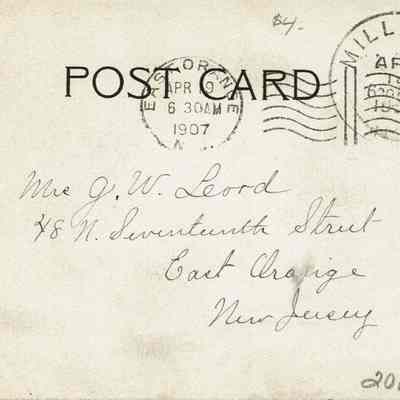 $4.
POST CARD
EAST ORANGE
APR 19
6 30 AM
1907
N.
MILL
AP
Mrs G. W. Leord
48 N. Seventeenth Street
East Orange
New Jersey
20